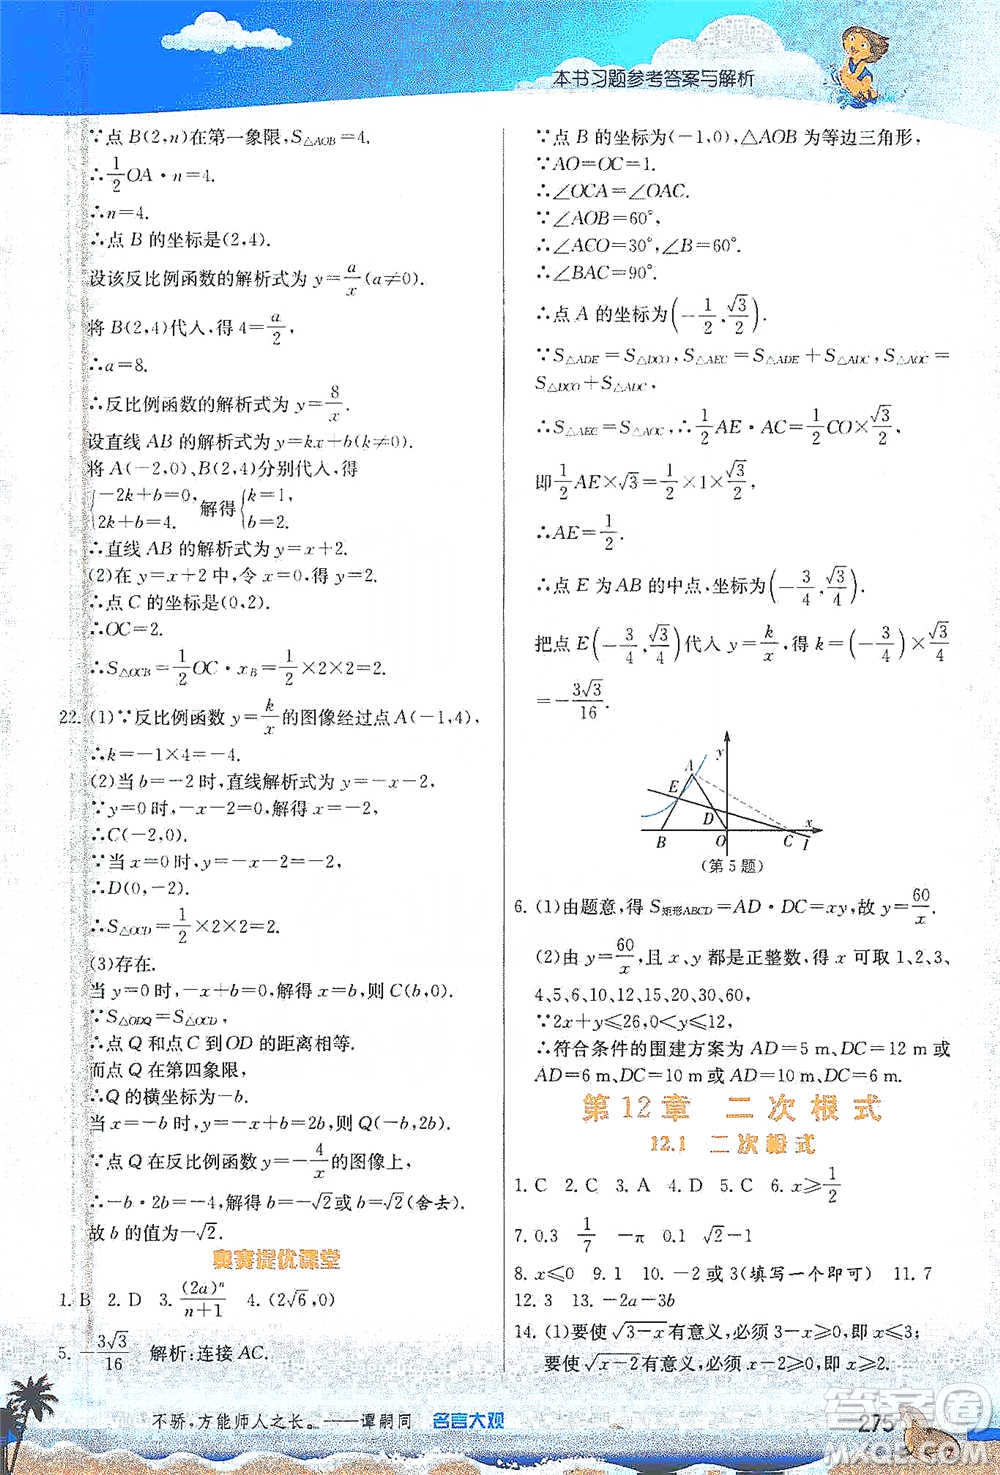 本书习题参考答案与解析
∵点 B(2,n)在第一象限,S△AOB=4.
∴1/2 OA·n=4.
∴n=4.
∴点 B 的坐标是(2,4).
设该反比例函数的解析式为 y=a/x(a≠0).
将 B(2,4)代入,得 4=a/2,
∴a=8.
∴反比例函数的解析式为 y=8/x.
设直线 AB 的解析式为 y=kx+b(k≠0).
将 A(-2,0)、B(2,4)分别代入,得
{-2k+b=0, 2k+b=4. 解得{k=1, b=2.
∴直线 AB 的解析式为 y=x+2.
(2)在 y=x+2 中,令 x=0,得 y=2.
∴点 C 的坐标是(0,2).
∴OC=2.
∴S△OCB=1/2 OC·xB=1/2×2×2=2.
22. (1)∵反比例函数 y=k/x的图像经过点 A(-1,4),
∴k=-1×4=-4.
(2)当 b=-2 时,直线解析式为 y=-x-2.
∵y=0 时,-x-2=0,解得 x=-2.
∴C(-2,0).
∵当 x=0 时,y=-x-2=-2.
∴D(0,-2).
∴S△OCD=1/2×2×2=2.
(3)存在.
当 y=0 时,-x+b=0,解得 x=b,则 C(b,0).
∵S△ODQ=S△OCD,
∴点 Q 和点 C 到 OD 的距离相等.
而点 Q 在第四象限,
∴点 Q 的横坐标为-b.
当 x=-b 时,y=-x+b=2b,则 Q(-b,2b).
∵点 Q 在反比例函数 y=-4/x的图像上,
∴-b·2b=-4,解得 b=-√2或 b=√2(舍去).
故 b 的值为-√2.
奥赛提优课堂
1. B 2. D 3. (2a)ⁿ/(n+1) 4. (2√6,0)
5. -3√3/16 解析:连接 AC.
∵点 B 的坐标为(-1,0),△AOB 为等边三角形,
∵AO=OC=1.
∴∠OCA=∠OAC.
∵∠AOB=60°,
∴∠ACO=30°,∠B=60°.
∴∠BAC=90°.
∴点 A 的坐标为(-1/2,√3/2).
∵S△ADE=S△DCO,S△AEC=S△ADE+S△ADC,S△AOC=
S△DCO+S△ADC,
∴S△AEC=S△AOC,∴1/2 AE·AC=1/2 CO×√3/2,
即1/2 AE×√3=1/2×1×√3/2.
∴AE=1/2.
∴点 E 为AB 的中点,坐标为(-3/4,√3/4).
把点 E(-3/4,√3/4)代入 y=k/x,得 k=(-3/4)×√3/4
=-3√3/16.
y
A
E
D
B O C l x
(第 5 题)
6. (1)由题意,得 S矩形ABCD=AD·DC=xy,故 y=60/x.
(2)由 y=60/x,且 x、y 都是正整数,得 x 可取 1、2、3、
4、5、6、10、12、15、20、30、60.
∵2x+y≤26,0<y≤12,
∴符合条件的围建方案为 AD=5 m、DC=12 m 或
AD=6 m、DC=10 m 或 AD=10 m、DC=6 m.
第 12 章 二次根式
12.1 二次根式
1. C 2. C 3. A 4. D 5. C 6. x≥1/2
7. 0.3 1/7 -π √2-1
8. x≤0 9. 1 10. -2 或 3(填写一个即可) 11. 7
12. 3 13. -2a-3b
14. (1)要使√(3-x)有意义,必须 3-x≥0,即 x≤3;
要使√(x-2)有意义,必须 x-2≥0,即 x≥2.
不骄,方能师人之长。——谭嗣同 名言大观
275
答案圈